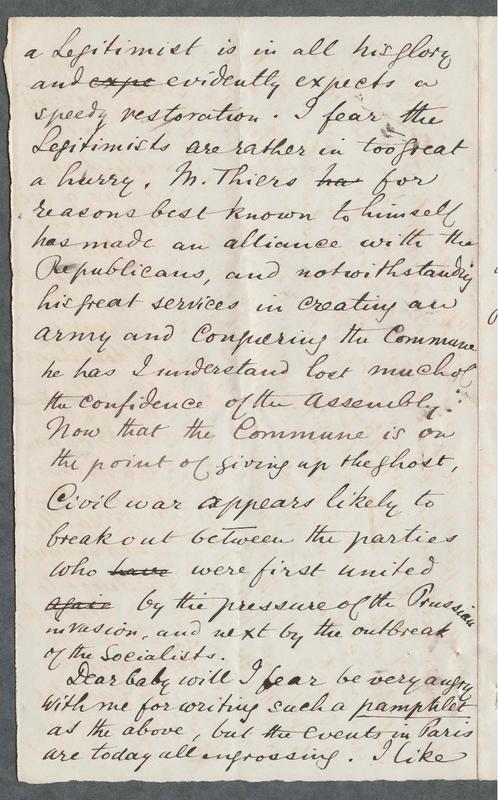 a Legitimist is in all his glory
and expe evidently expects a
speedy restoration. I fear the
Legitimists are rather in too great
a hurry. M. Thiers ha for
reasons best known to himself
has made an alliance with the
Republicans, and notwithstanding
his great services in creating an
army and conquering the Commune
he has I understand lost much of
the confidence of the Assembly.
Now that the Commune is on
the point of giving up the ghost,
Civil war appears likely to
break out between the parties
who have were first united
again by the pressure of the Prussian
invasion, and next by the outbreak
of the Socialists.
Dear baby will I fear be very angry
with me for writing such a pamphlet
as the above, but the events in Paris
are today all engrossing. I like